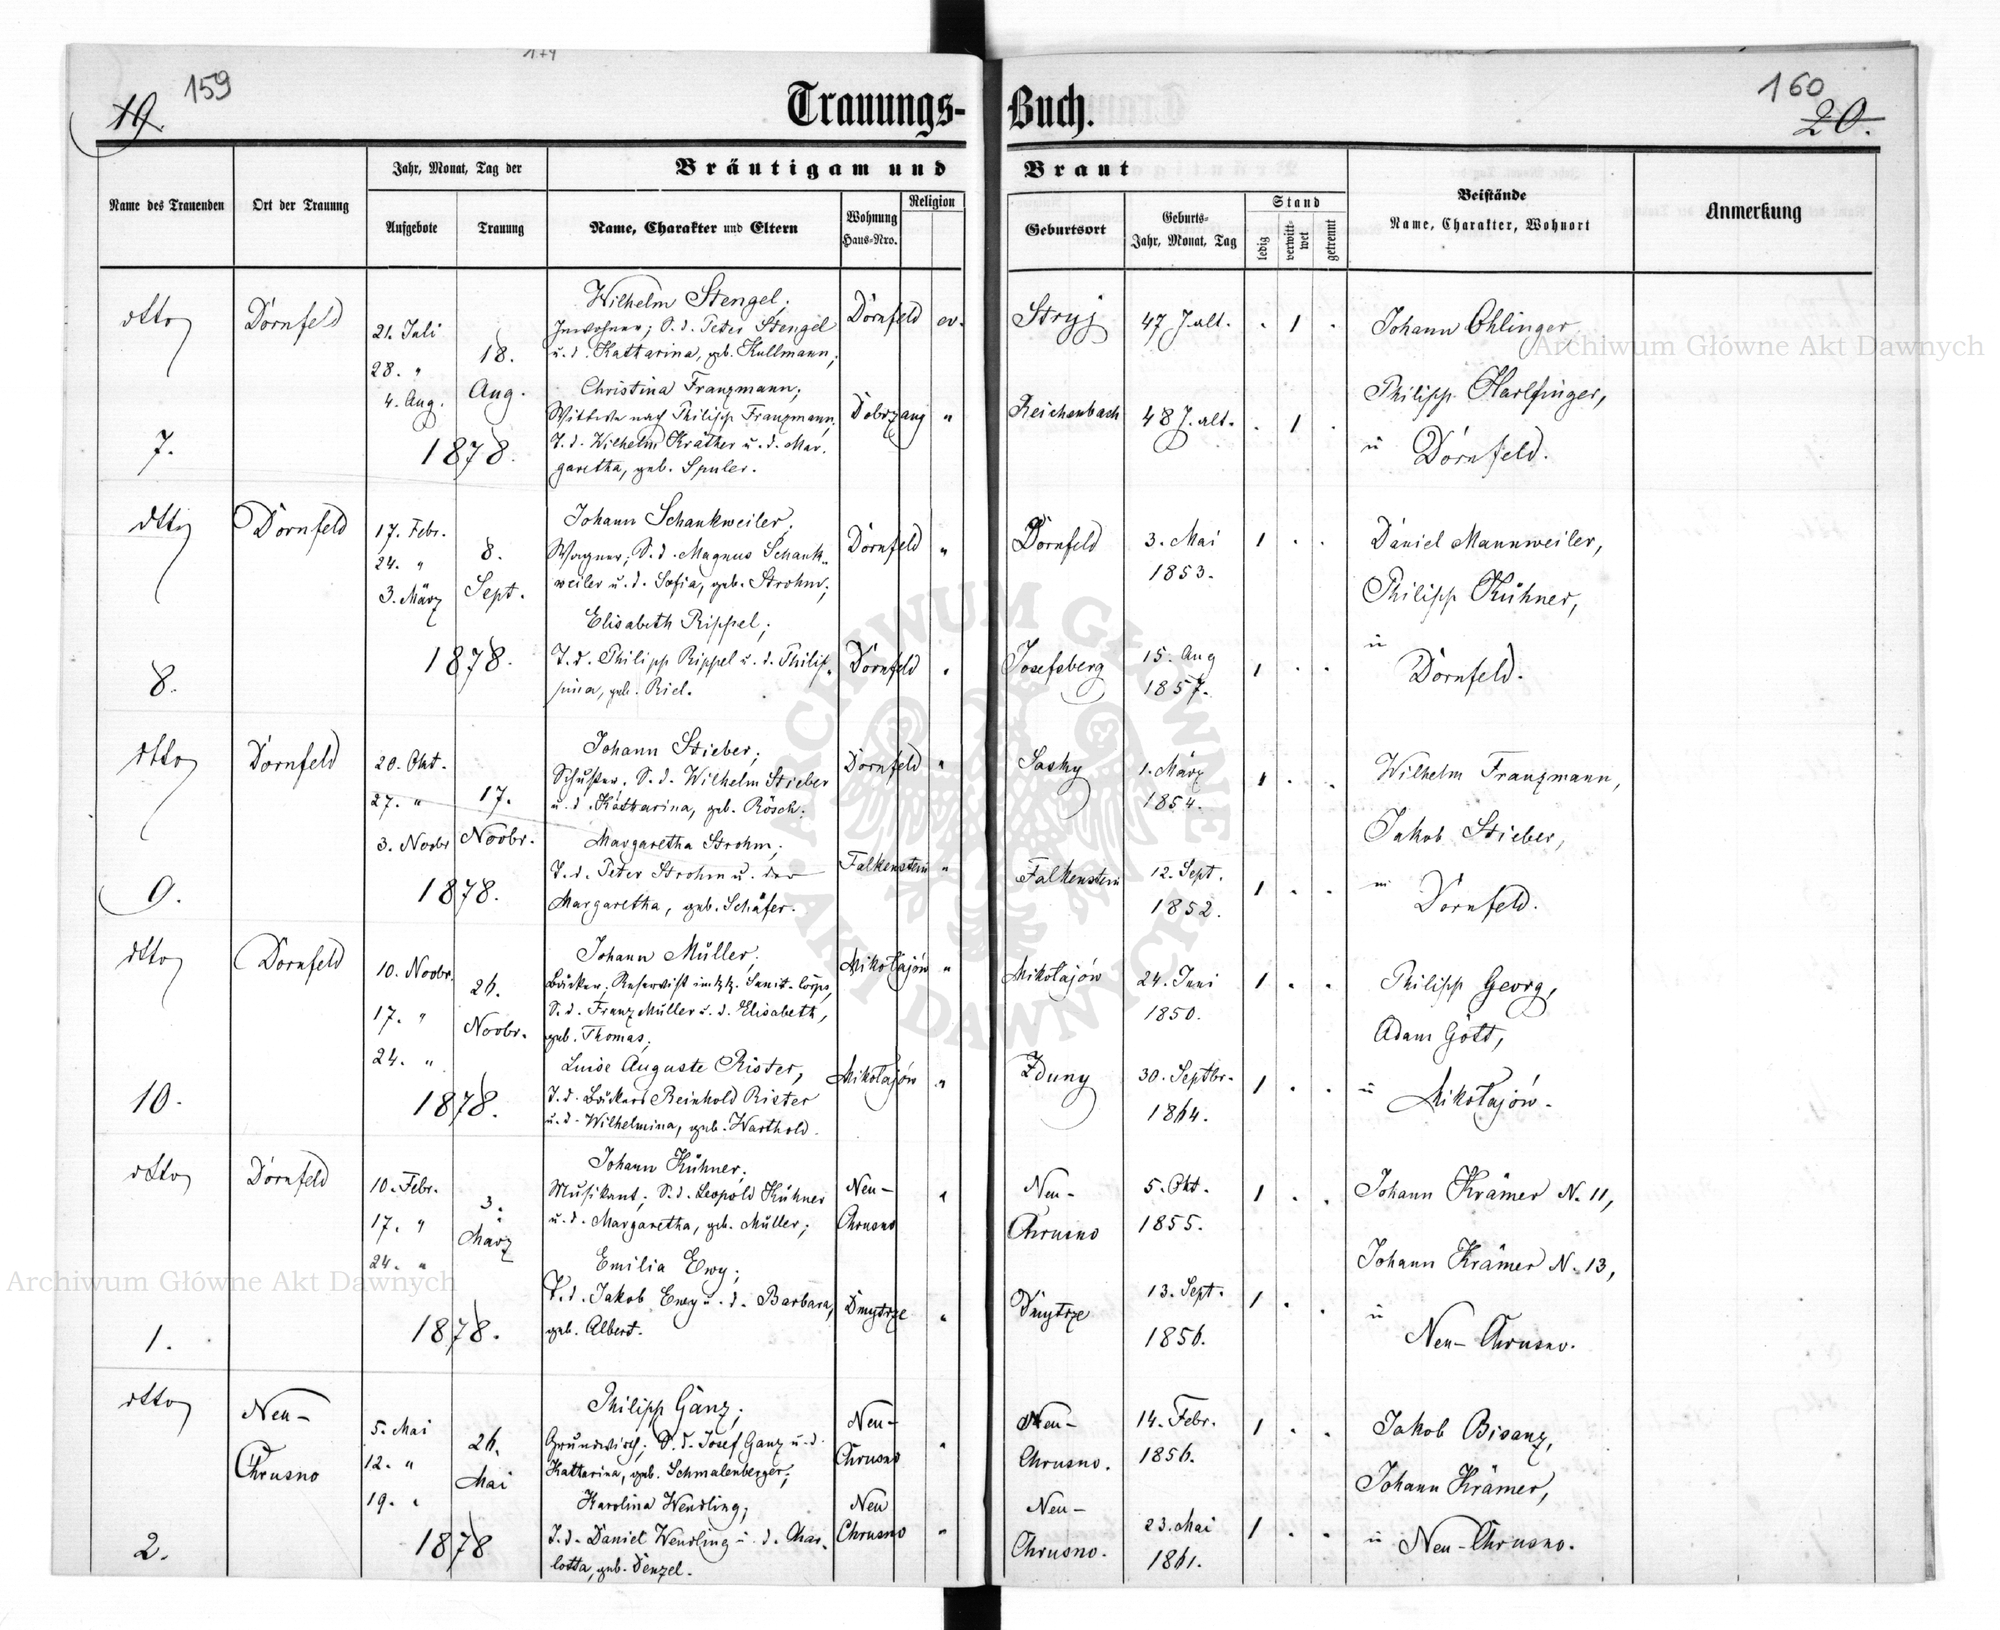 174
159
19.
Trauungs-
Buch.
160
20.
Name des Trauenden
Ort der Trauung
Jahr, Monat, Tag der
Aufgebote
Trauung
Bräutigam und
Braut
Name, Charakter und Eltern
Wohnung
Haus-Nro.
Religion
Geburtsort
Geburts-
Jahr, Monat, Tag
Stand
ledig
verwitt-
wet
getrennt
Beistände
Name, Charakter, Wohnort
Anmerkung
dtto
7.
Dornfeld
21. Juli
28. "
4. Aug.
18.
Aug.
1878.
Wilhelm Stengel;
Inwohner; S. d. Peter Stengel
u. d. Katharina, geb. Kullmann;
Christina Franzmann;
Wittwe nach Philipp Franzmann,
T. d. Wilhelm Kräther u. d. Mar.
garetha, geb. Spuler.
Dornfeld ev.
Dobrzany "
Stryj
47 J. alt. . 1 .
Reichenbach
48 J. alt. . 1 .
Johann Ohlinger
Philipp Harlfinger,
in Dornfeld.
dtto
8.
Dornfeld
17. Febr.
24. "
3. März
8.
Sept.
1878.
Johann Schankweiler;
Wagner; S. d. Magnus Schank-
weiler u. d. Sofia, geb. Strohm;
Elisabeth Rippel;
T. d. Philipp Rippel u. d. Philip-
pina, geb. Riel.
Dornfeld "
Dornfeld "
Dornfeld
3. Mai
1853.
1 . .
Josefsberg
15. Aug
1857.
1 . .
Daniel Mannweiler,
Philipp Kühner,
in
Dornfeld.
dtto
9.
Dornfeld
20. Okt.
27. "
3. Novbr
17.
Novbr.
1878.
Johann Stieber;
Schuster, S. d. Wilhelm Stieber
u. d. Katharina, geb. Rösch;
Margaretha Strohm;
T. d. Peter Strohm u. der
Margaretha, geb. Schäfer.
Dornfeld "
Falkenstein "
Sasky
1. März
1854.
1 . .
Falkenstein
12. Sept.
1852.
1 . .
Wilhelm Franzmann,
Jakob Stieber,
in
Dornfeld.
dtto
10.
Dornfeld
10. Novbr.
17. "
24. "
26.
Novbr.
1878.
Johann Müller;
Bäcker, Reservist im k.k. Sanit. Corps,
S. d. Franz Müller u. d. Elisabeth,
geb. Thomas;
Luise Auguste Rister,
T. d. Bäckers Reinhold Rister
u. d. Wilhelmina, geb. Warthold.
Mikołajów "
Mikołajów "
Mikołajów
24. Juni
1850.
1 . .
Zduny
30. Septbr.
1864.
1 . .
Philipp Georg,
Adam Gött,
in Mikołajów.
dtto
1.
Dornfeld
10. Febr.
17. "
24. "
3.
März
1878.
Johann Kühner;
Musikant; S. d. Leopold Kühner
u. d. Margaretha, geb. Müller;
Emilia Ewy;
T. d. Jakob Ewy u. d. Barbara,
geb. Albert.
Neu-
Chrusno
Dmytrze
Neu-
Chrusno
5. Okt.
1855.
1 . .
Dmytrze
13. Sept.
1856.
1 . .
Johann Krämer N. 11,
Johann Krämer N. 13,
in
Neu-Chrusno.
dtto
2.
Neu-
Chrusno
5. Mai
12. "
19. "
26.
Mai
1878
Philipp Ganz;
Grundwirth; S. d. Josef Ganz u. d.
Katharina, geb. Schmalenberger;
Karolina Wendling;
T. d. Daniel Wendling u. d. Char-
lotta, geb. Denzel.
Neu-
Chrusno
Neu
Chrusno "
Neu-
Chrusno.
14. Febr.
1856.
1 . .
Neu-
Chrusno.
23. Mai
1861.
1 . .
Jakob Bisanz,
Johann Krämer,
in Neu-Chrusno.
Archiwum Główne Akt Dawnych
Archiwum Główne Akt Dawnych
ARCHIWUM GŁÓWNE AKT DAWNYCH